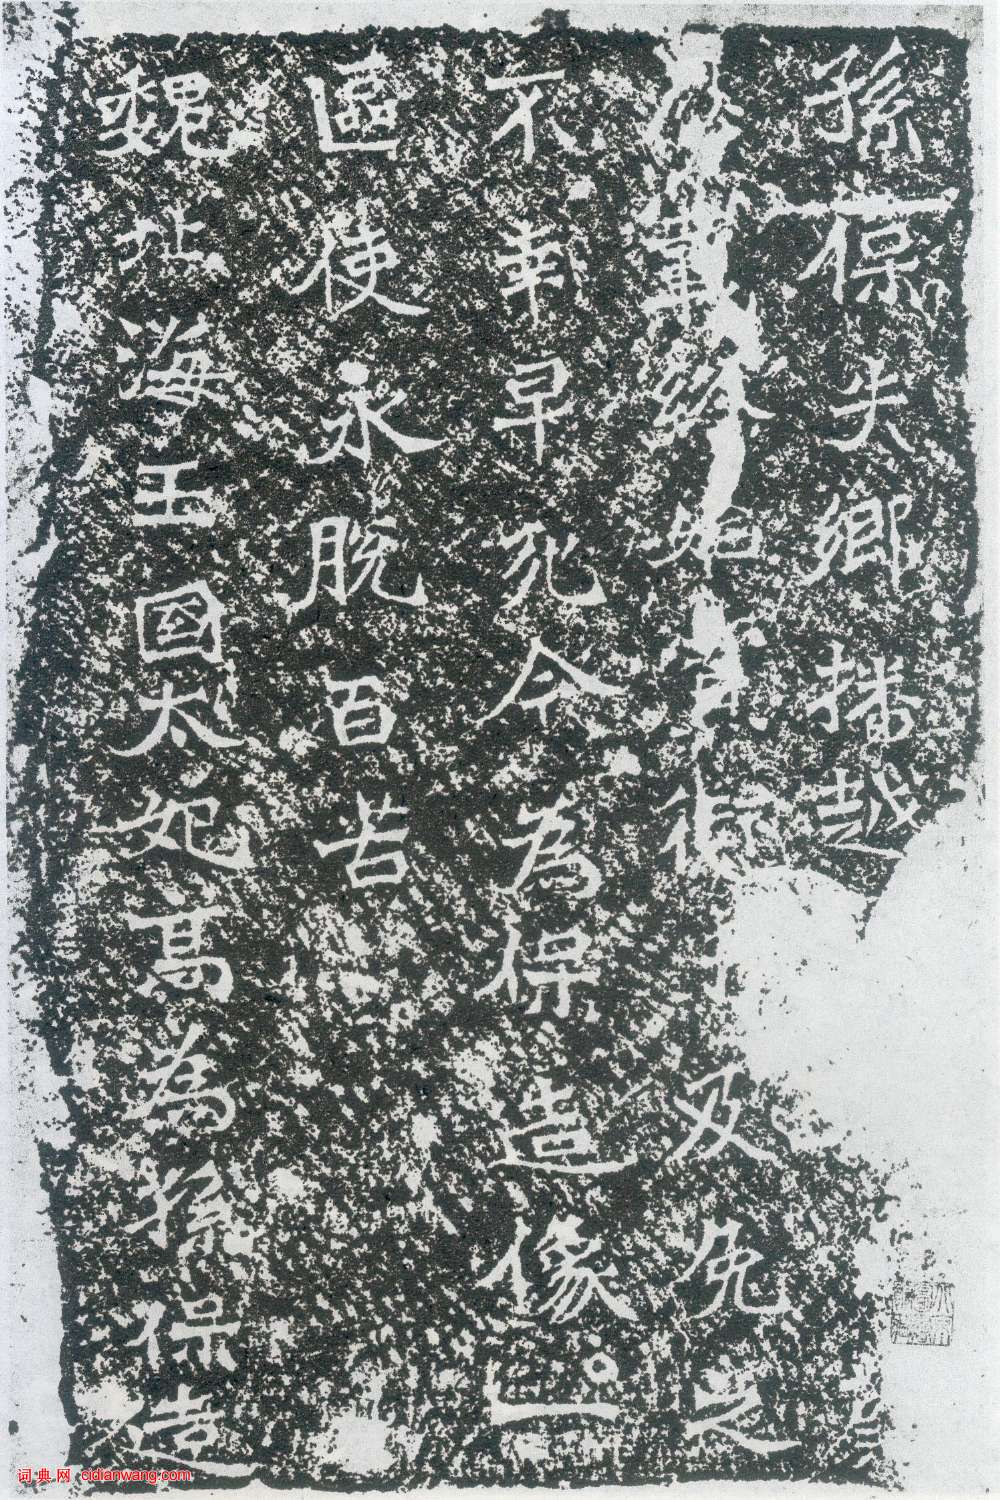 孫保失鄉播越
始及免之
不幸早死今為保造像一
區使永脫百苦
魏北海王國太妃高為孫保造
词典网 cidianwang.com